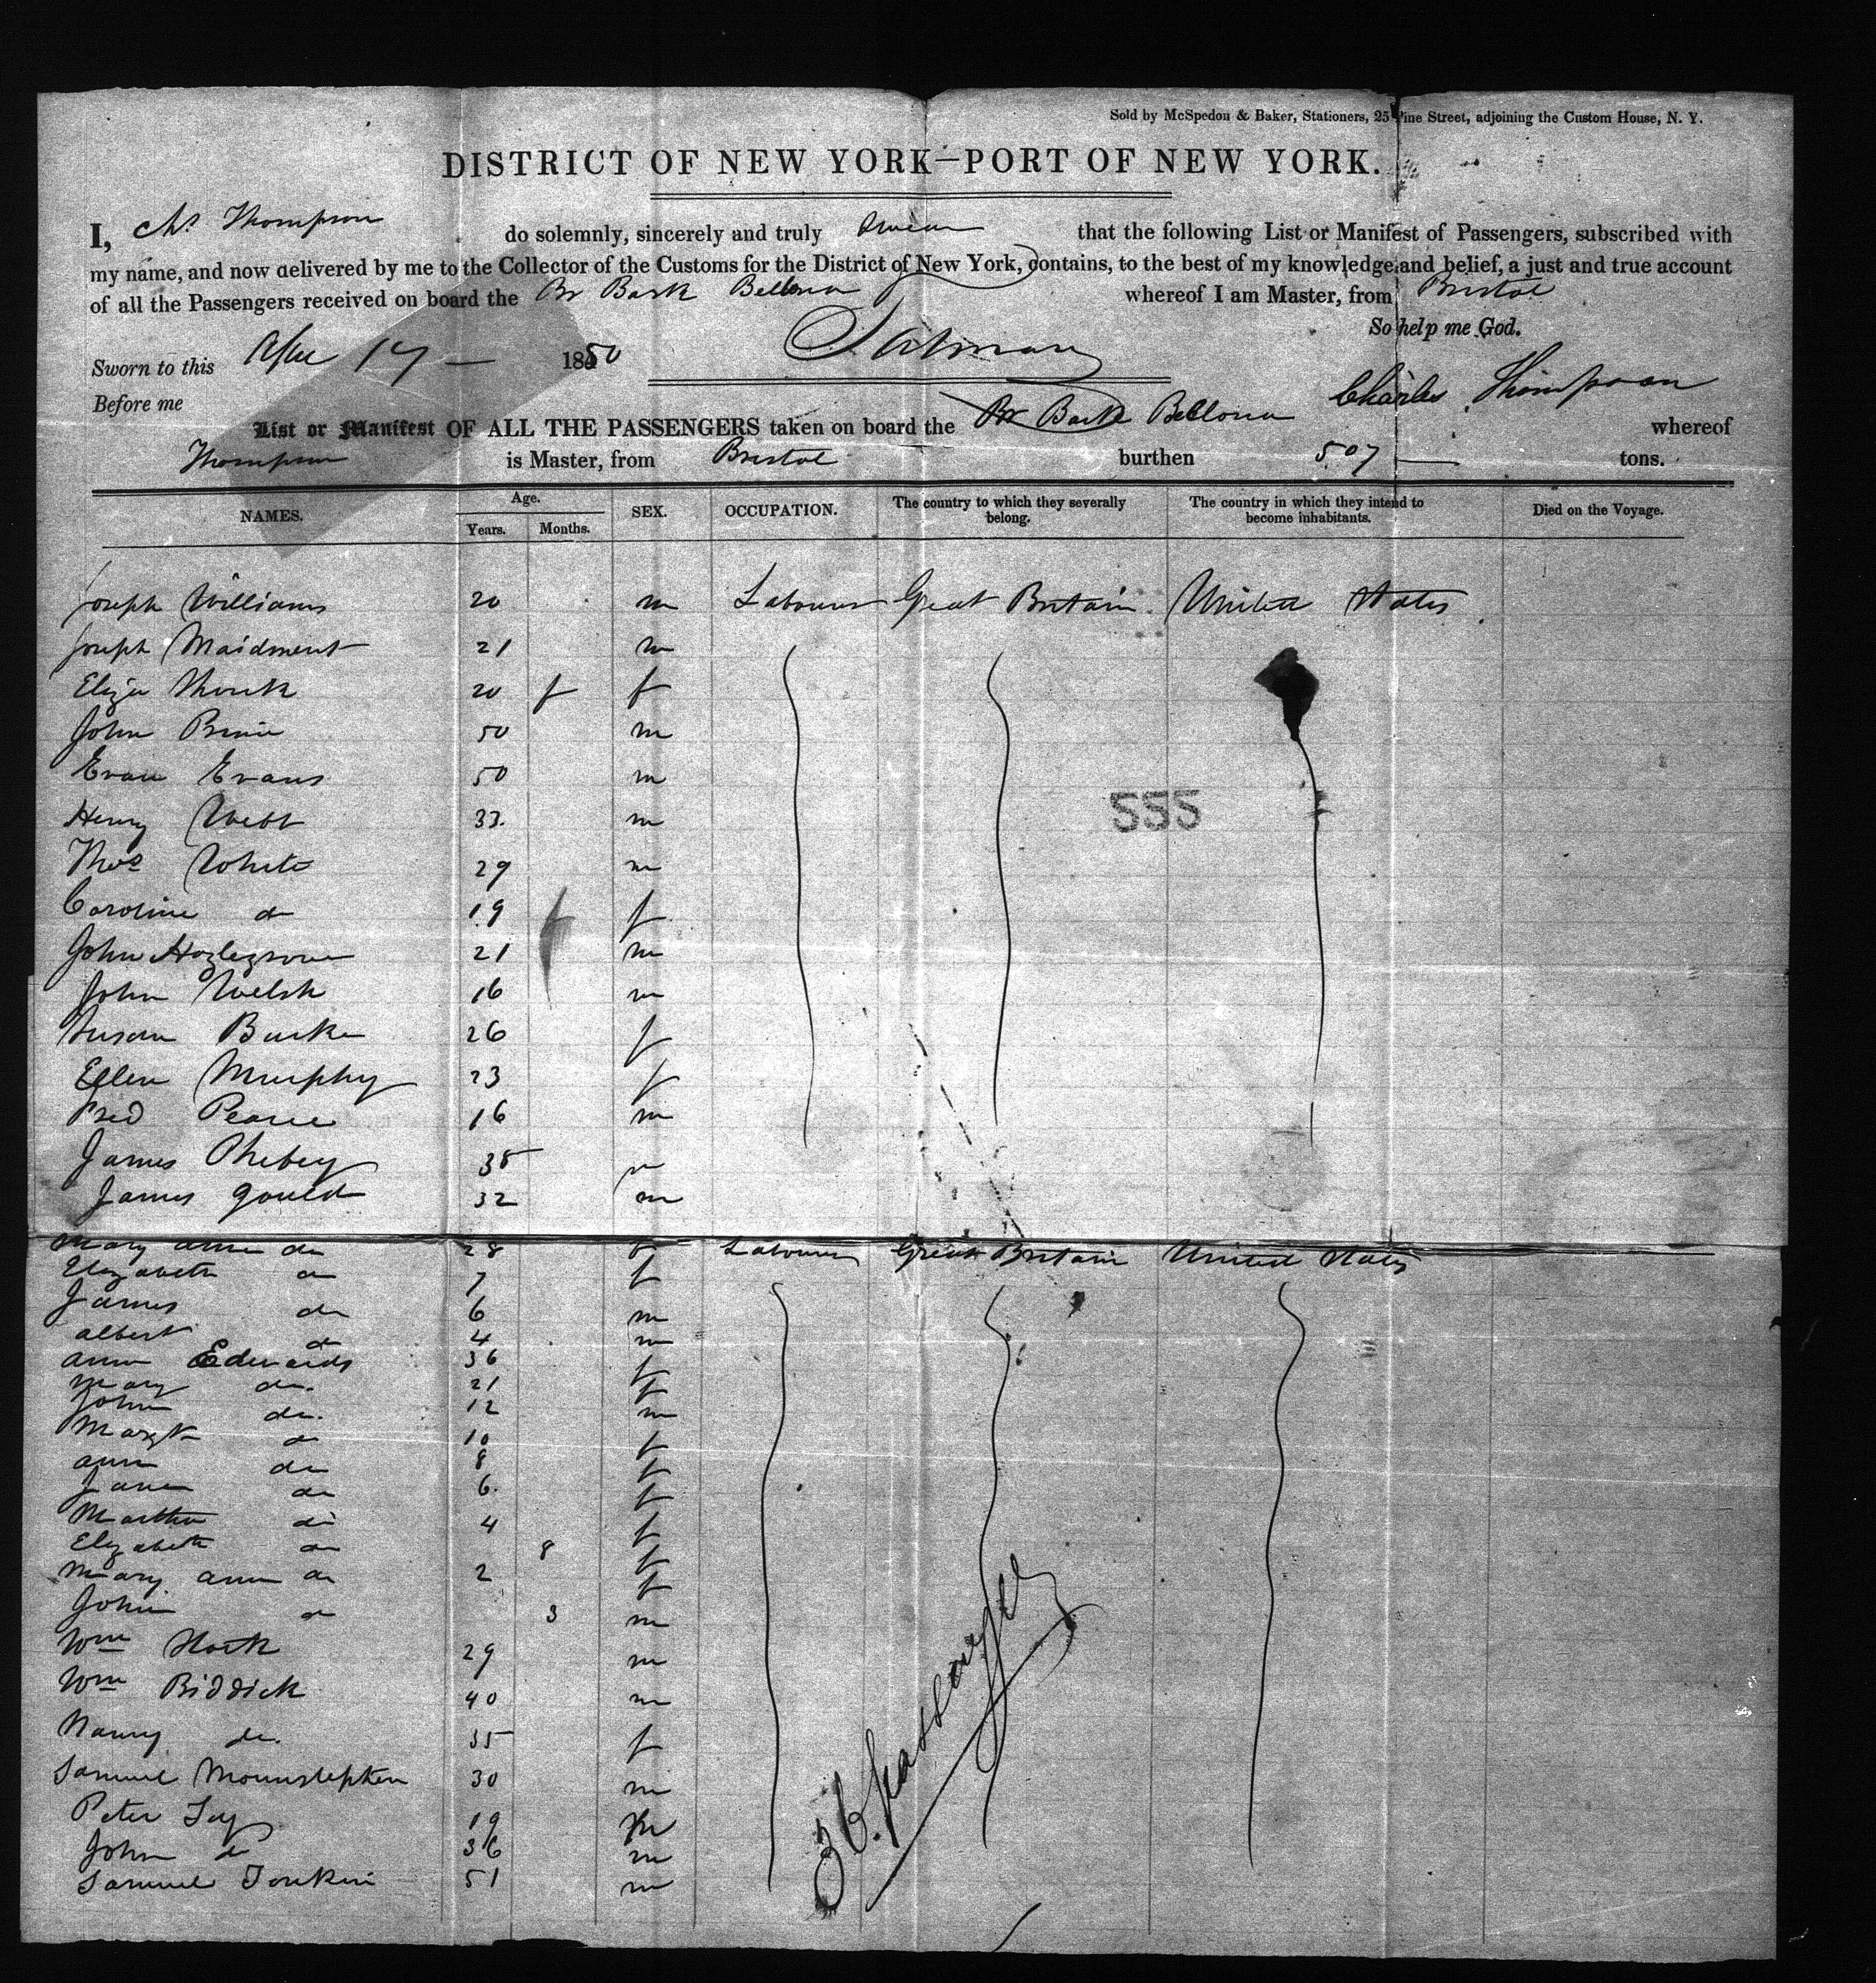 Sold by McSpedon & Baker, Stationers, 25 Pine Street, adjoining the Custom House, N. Y.
DISTRICT OF NEW YORK—PORT OF NEW YORK.
I, Chs Thompson do solemnly, sincerely and truly Swear that the following List or Manifest of Passengers, subscribed with
my name, and now delivered by me to the Collector of the Customs for the District of New York, contains, to the best of my knowledge and belief, a just and true account
of all the Passengers received on board the Br Bark Bellona whereof I am Master, from Bristol
So help me God.
Sworn to this 17 1850
Before me Charles Thompson
List or Manifest OF ALL THE PASSENGERS taken on board the Br Bark Bellona whereof
Thompson is Master, from Bristol burthen 507 tons.
NAMES. Age. Years. Months. SEX. OCCUPATION. The country to which they severally belong. The country in which they intend to become inhabitants. Died on the Voyage.
Joseph Williams 20 m Labourer Great Britain United States
Joseph Maidment 21 m
Eliza 20 f f
John 50 m
Evan Evans 50 m
555
Henry Webb 33. m
Thos White 29 m
Caroline do 19 f
John Hazlegrove 21 m
John Welsh 16 m
Susan Burke 26 f
Ellen Murphy 23 f
Fred Pearce 16 m
James Phebey 35 m
James Gould 32 m
Mary Ann do 28 f Labourer Great Britain United States
Elizabeth do 7 f
James do 6 m
Albert do 4 m
Ann Edwards 36 f
Mary do. 21 f
John do. 12 m
Margt do 10 f
Ann do 8 f
Jane do 6. f
Martha do 4 f
Elizabeth do 8 f
Mary Ann do 2 f
John do 3 m
Wm 29 m
Wm Biddick 40 m
Nanny do. 35 f
Samuel Mounstephen 30 m
Peter 19 m
John do 36 m
Samuel Tonkin 51 m
36. passengers